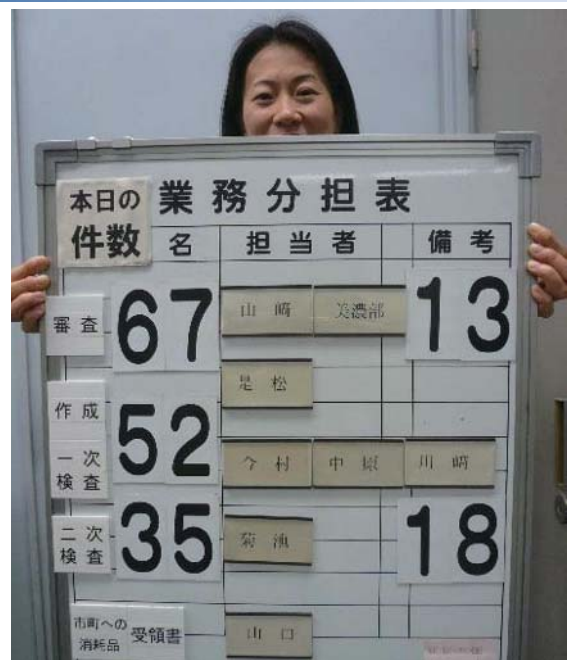 本日の 業務分担表
件数 名 担当者 備考
審査 67 山崎 美濃部 13
是松
作成 52
一次検査 今村 中原 川崎
二次検査 35 菊池 18
市町への消耗品 受領書 山口